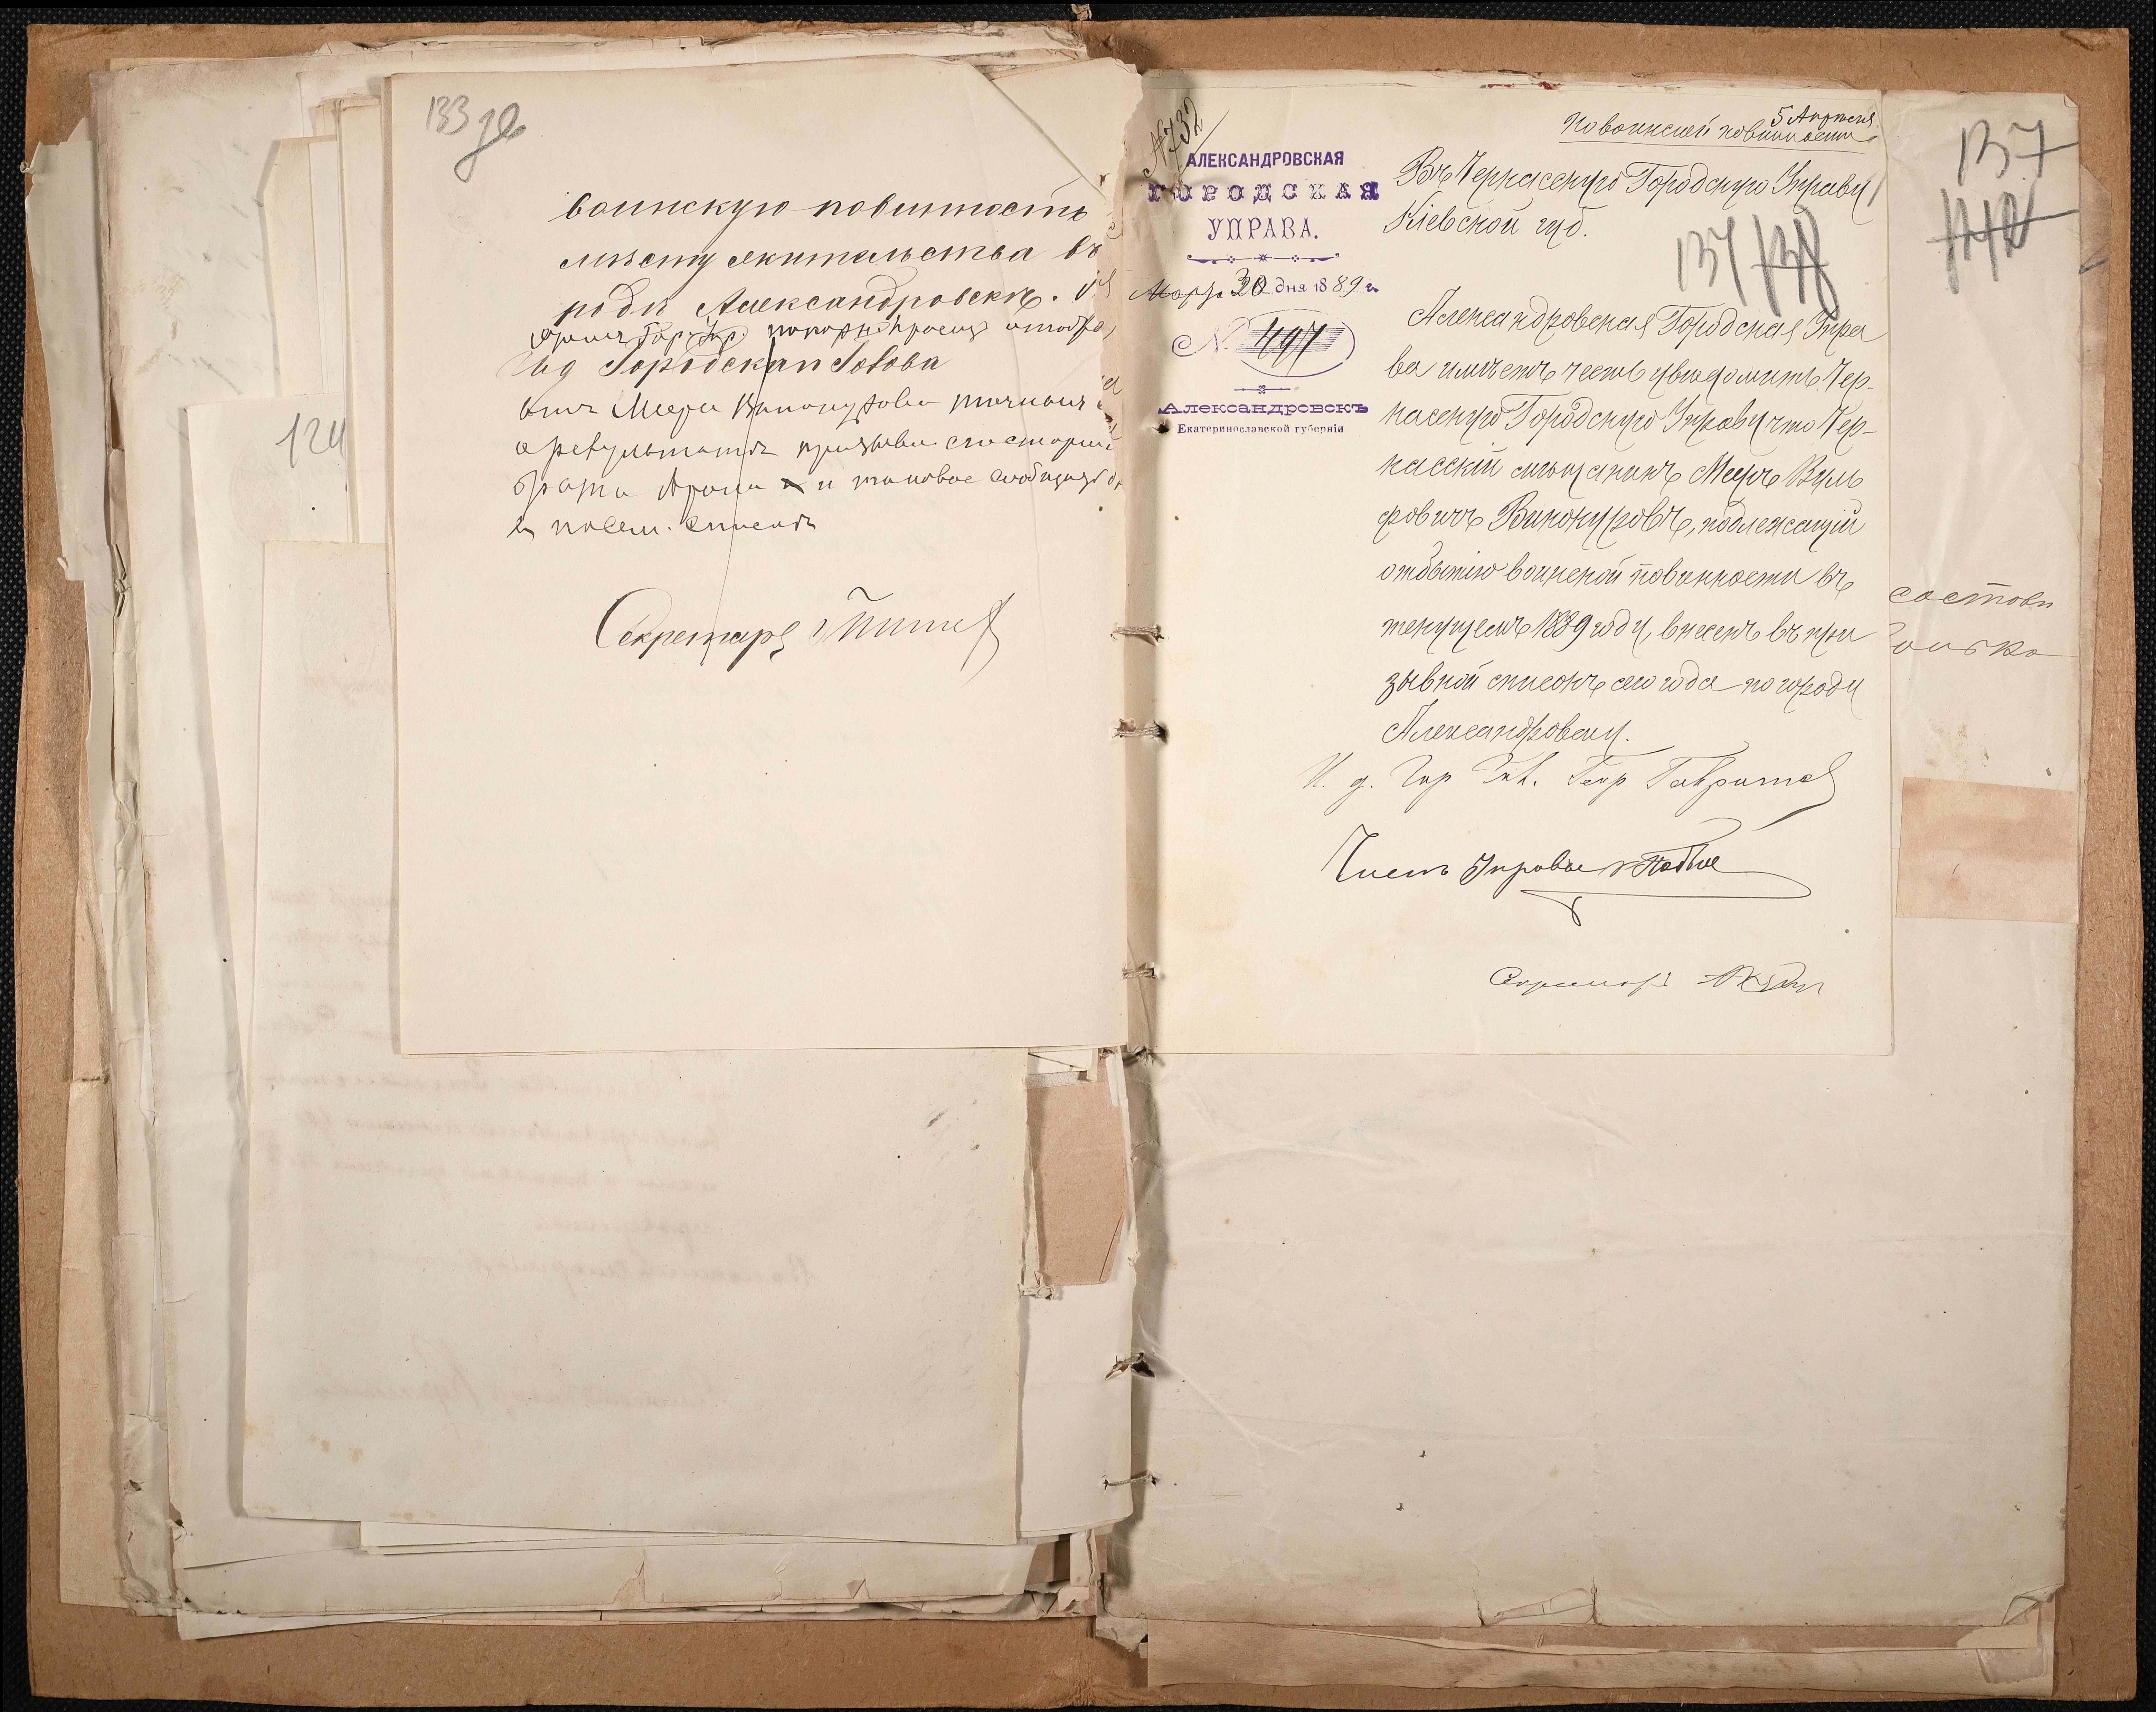 133
воинскую повинность
мѣсту жительства въ
родѣ Александровскѣ.
покорн. проситъ отобра
Ид Городскаго Головы
Меера Винокурова
о результатѣ призыва его старшаго
брата Арона и таковое сообщить
посем. списокъ
Секретарь
124
№732
АЛЕКСАНДРОВСКАЯ
ГОРОДСКАЯ
УПРАВА.
Марта 30 дня 1889 г.
№ 497
Александровскъ
Екатеринославской губерніи
5 Апрѣля
По воинской повинности
Въ Черкасскую Городскую Управу
Кіевской губ.
137 138
Александровская Городская Упра
ва имѣетъ честь увѣдомить Чер-
касскую Городскую Управу что Чер-
касскій мѣщанинъ Мееръ Вуль
фовичъ Винокуровъ, подлежащій
отбытію воинской повинности въ
текущемъ 1889 году, внесенъ въ при
зывной списокъ сего года по городу
Александровску.
И. д. Гор. Гол.
Членъ Управы
Секретарь
137
142
состоя
только